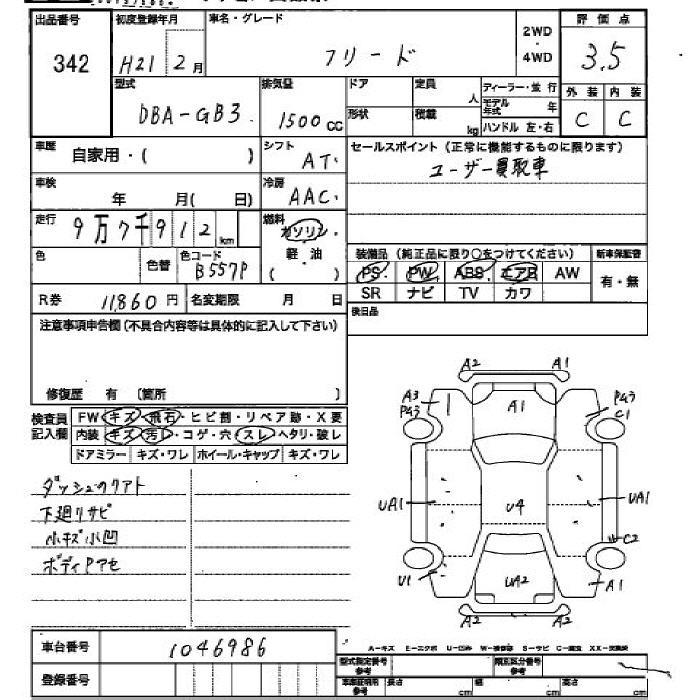 出品番号 342
初度登録年月 H21 2月
車名・グレード フリード
2WD・4WD
評価点 3.5
外装 C 内装 C
型式 DBA-GB3
排気量 1500cc
ドア 形状
定員 人 積載 kg
ディーラー・並行
モデル年式 年
ハンドル 左・右
車歴 自家用・( )
シフト AT
セールスポイント (正常に機能するものに限ります)
ユーザー買取車
車検 年 月( 日)
冷房 AAC
走行 9万7千912km
燃料 ガソリン・軽油 ( )
色 色替 色コード B557P
装備品 (純正品に限り○をつけてください) 新車保証書
PS PW ABS エアB AW 有・無
SR ナビ TV カワ
R券 11,860円 名変期限 月 日
後日品
注意事項申告欄 (不具合内容等は具体的に記入して下さい)
修復歴 有 〔箇所 〕
検査員記入欄
FW キズ・飛石・ヒビ割・リペア跡・X要
内装 キズ・汚レ・コゲ・穴・スレ・ヘタリ・破レ
ドアミラー キズ・ワレ ホイール・キャップ キズ・ワレ
ダッシュのリアト
下廻りサビ
小キズ小凹
ボディPアセ
A2 A1
A3 P43 A1 P43 C1
UA1 U4 UA1
C2
U1 UA2 A1
A2 A2
車台番号 1046986
A-キズ E-エクボ U-凹み W-補修跡 S-サビ C-腐食 XX-交換済
登録番号
型式指定番号 参考 類別区分番号 参考
車庫証明用 参考 長さ cm 幅 cm 高さ cm